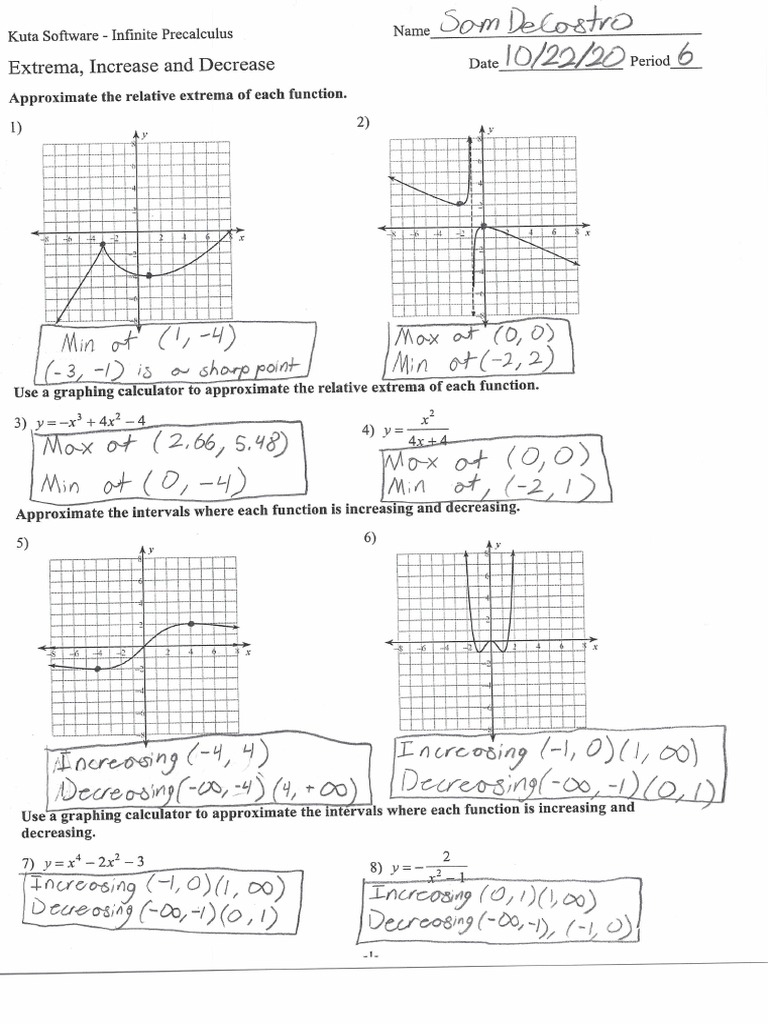 Kuta Software - Infinite Precalculus
Name Sam DeCastro
Extrema, Increase and Decrease
Date 10/22/20 Period 6
Approximate the relative extrema of each function.
1)
2)
Min at (1, -4)
(-3, -1) is a sharp point
Max at (0, 0)
Min at (-2, 2)
Use a graphing calculator to approximate the relative extrema of each function.
3) y = -x³ + 4x² - 4
4) y = x² / 4x + 4
Max at (2.66, 5.48)
Min at (0, -4)
Max at (0, 0)
Min at, (-2, 1)
Approximate the intervals where each function is increasing and decreasing.
5)
6)
Increasing (-4, 4)
Decreasing (-∞, -4) (4, +∞)
Increasing (-1, 0) (1, ∞)
Decreasing (-∞, -1) (0, 1)
Use a graphing calculator to approximate the intervals where each function is increasing and
decreasing.
7) y = x⁴ - 2x² - 3
8) y = - 2 / x² - 1
Increasing (-1, 0) (1, ∞)
Decreasing (-∞, -1) (0, 1)
Increasing (0, 1) (1, ∞)
Decreasing (-∞, -1), (-1, 0)
-1-